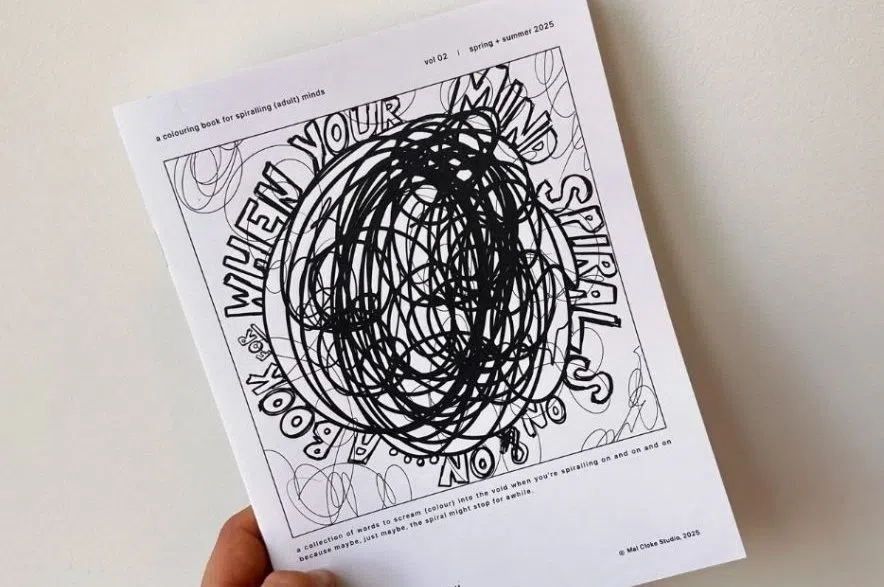 a colouring book for spiralling (adult) minds
vol 02 | spring + summer 2025
A BOOK FOR WHEN YOUR MIND SPIRALS ON & ON....
a collection of words to scream (colour) into the void when you're spiralling on and on and on
because maybe, just maybe, the spiral might stop for awhile.
© Mal Cloke Studio, 2025